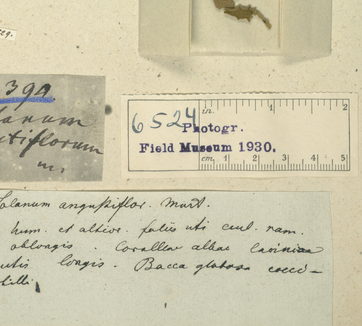 29.
in.
6524
Photogr.
1 2 3 4 5
Field Museum 1930.
cm. 1 2
390
m.
Solanum angustiflor. Mart.
hum. et altior. foliis uti caul. ram.
oblongis. Corollae albae laciniae
longis. Bacca globosa cocci-